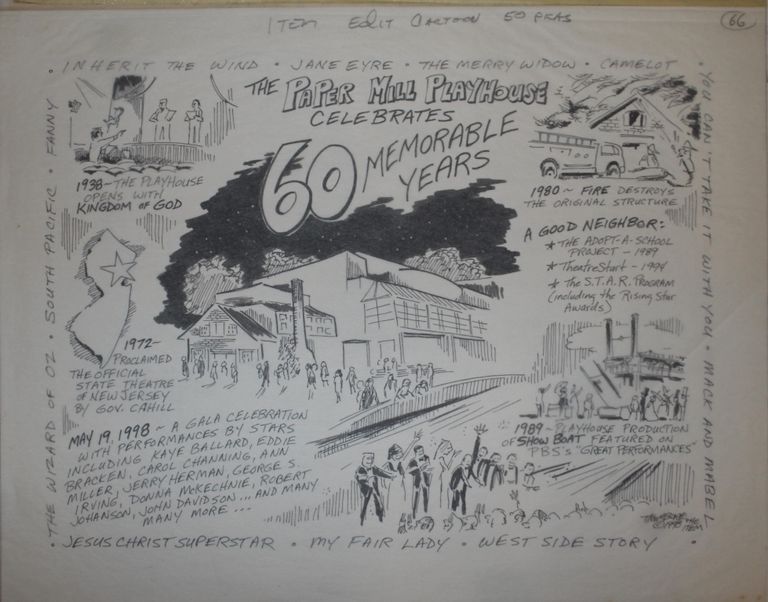 ITEM EDIT CARTOON 50 PEAS
66
INHERIT THE WIND • JANE EYRE • THE MERRY WIDOW • CAMELOT
YOU CAN'T TAKE IT WITH YOU • MACK AND MABEL
THE WIZARD OF OZ • SOUTH PACIFIC • FANNY
THE PAPER MILL PLAYHOUSE
CELEBRATES
60 MEMORABLE
YEARS
1938~THE PLAYHOUSE
OPENS WITH
KINGDOM OF GOD
1980~ FIRE DESTROYS
THE ORIGINAL STRUCTURE
A GOOD NEIGHBOR:
* THE ADOPT-A-SCHOOL
PROJECT - 1989
* TheatreStart - 1994
* The S.T.A.R. PROGRAM
(including the Rising Star
Awards)
1972~
PROCLAIMED
THE OFFICIAL
STATE THEATRE
OF NEW JERSEY
BY GOV. CAHILL
MAY 19, 1998 ~ A GALA CELEBRATION
WITH PERFORMANCES BY STARS
INCLUDING KAYE BALLARD, EDDIE
BRACKEN, CAROL CHANNING, ANN
MILLER, JERRY HERMAN, GEORGE S
IRVING, DONNA McKECHNIE, ROBERT
JOHANSON, JOHN DAVIDSON... AND MANY
MANY MORE...
1989~PLAYHOUSE PRODUCTION
OF SHOW BOAT FEATURED ON
PBS's "GREAT PERFORMANCES"
©1998 THE
ITEM
JESUS CHRIST SUPERSTAR • MY FAIR LADY • WEST SIDE STORY •